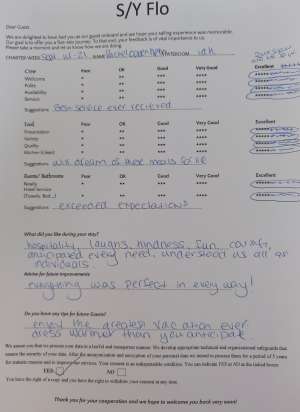 S/Y Flo
Dear Guest
We are delighted to have had you as our guest onboard and we hope your sailing experience was memorable.
Our goal is to offer you a five-star journey. To that end, your feedback is of vital importance to us.
Please take a moment and let us know how we are doing.
CHARTER WEEK Sept 14-21 NAME Rachel STATEROOM
Crew Poor OK Good Very Good Excellent
Welcome * ** *** **** *****
Polite * ** *** **** *****
Availability * ** *** **** *****
Service * ** *** **** *****
Suggestions Best service ever received
Food Poor OK Good Very Good Excellent
Presentation * ** *** **** *****
Variety * ** *** **** *****
Quality * ** *** **** *****
Kitchen (clean) * ** *** **** *****
Suggestions will dream of these meals for life
Rooms/ Bathrooms Poor OK Good Very Good Excellent
Ready * ** *** **** *****
Hotel Service
(Towels, Bed...) * ** *** **** *****
Suggestions exceeded expectations
What did you like during your stay?
hospitality, laughs, kindness, fun, care,
anticipated every need, understood us all as
individuals.
Advise for future improvements
everything was perfect in every way!
Do you have any tips for future Guests?
enjoy the greatest vacation ever
dress warmer than you anticipate
We assure you that we process your data in a lawful and transparent manner. We develop appropriate technical and organizational safeguards that
ensure the security of your data. After the anonymization and encryption of your personal data we intend to process them for a period of 5 years
for statistic reasons and to improve our services. Your consent is an indispensable condition. You can indicate YES or NO in the linked boxes
YES NO
You have the right of access and you have the right to withdraw your consent at any time.
Thank you for your cooperation and we hope to welcome you back very soon!